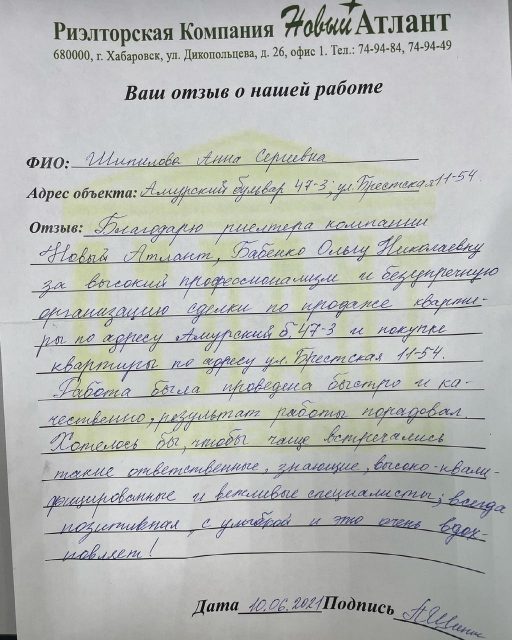 Риэлторская Компания Новый Атлант
680000, г. Хабаровск, ул. Дикопольцева, д. 26, офис 1. Тел.: 74-94-84, 74-94-49
Ваш отзыв о нашей работе
ФИО: Шипилова Анна Сергеевна
Адрес объекта: Амурский бульвар 47-3; ул. Брестская 11-54.
Отзыв: Благодарю риелтера компании
"Новый Атлант", Бабенко Ольгу Николаевну
за высокий профессионализм и безупречную
организацию сделки по продаже кварти-
ры по адресу Амурский б. 47-3 и покупке
квартиры по адресу ул. Брестская 11-54.
Работа была проведена быстро и ка-
чественно, результат работы порадовал.
Хотелось бы, чтобы чаще встречались
такие ответственные, знающие, высоко-квали-
фицированные и вежливые специалисты; всегда
позитивная, с улыбкой и это очень вдох-
новляет!
Дата 10.06.2021 Подпись